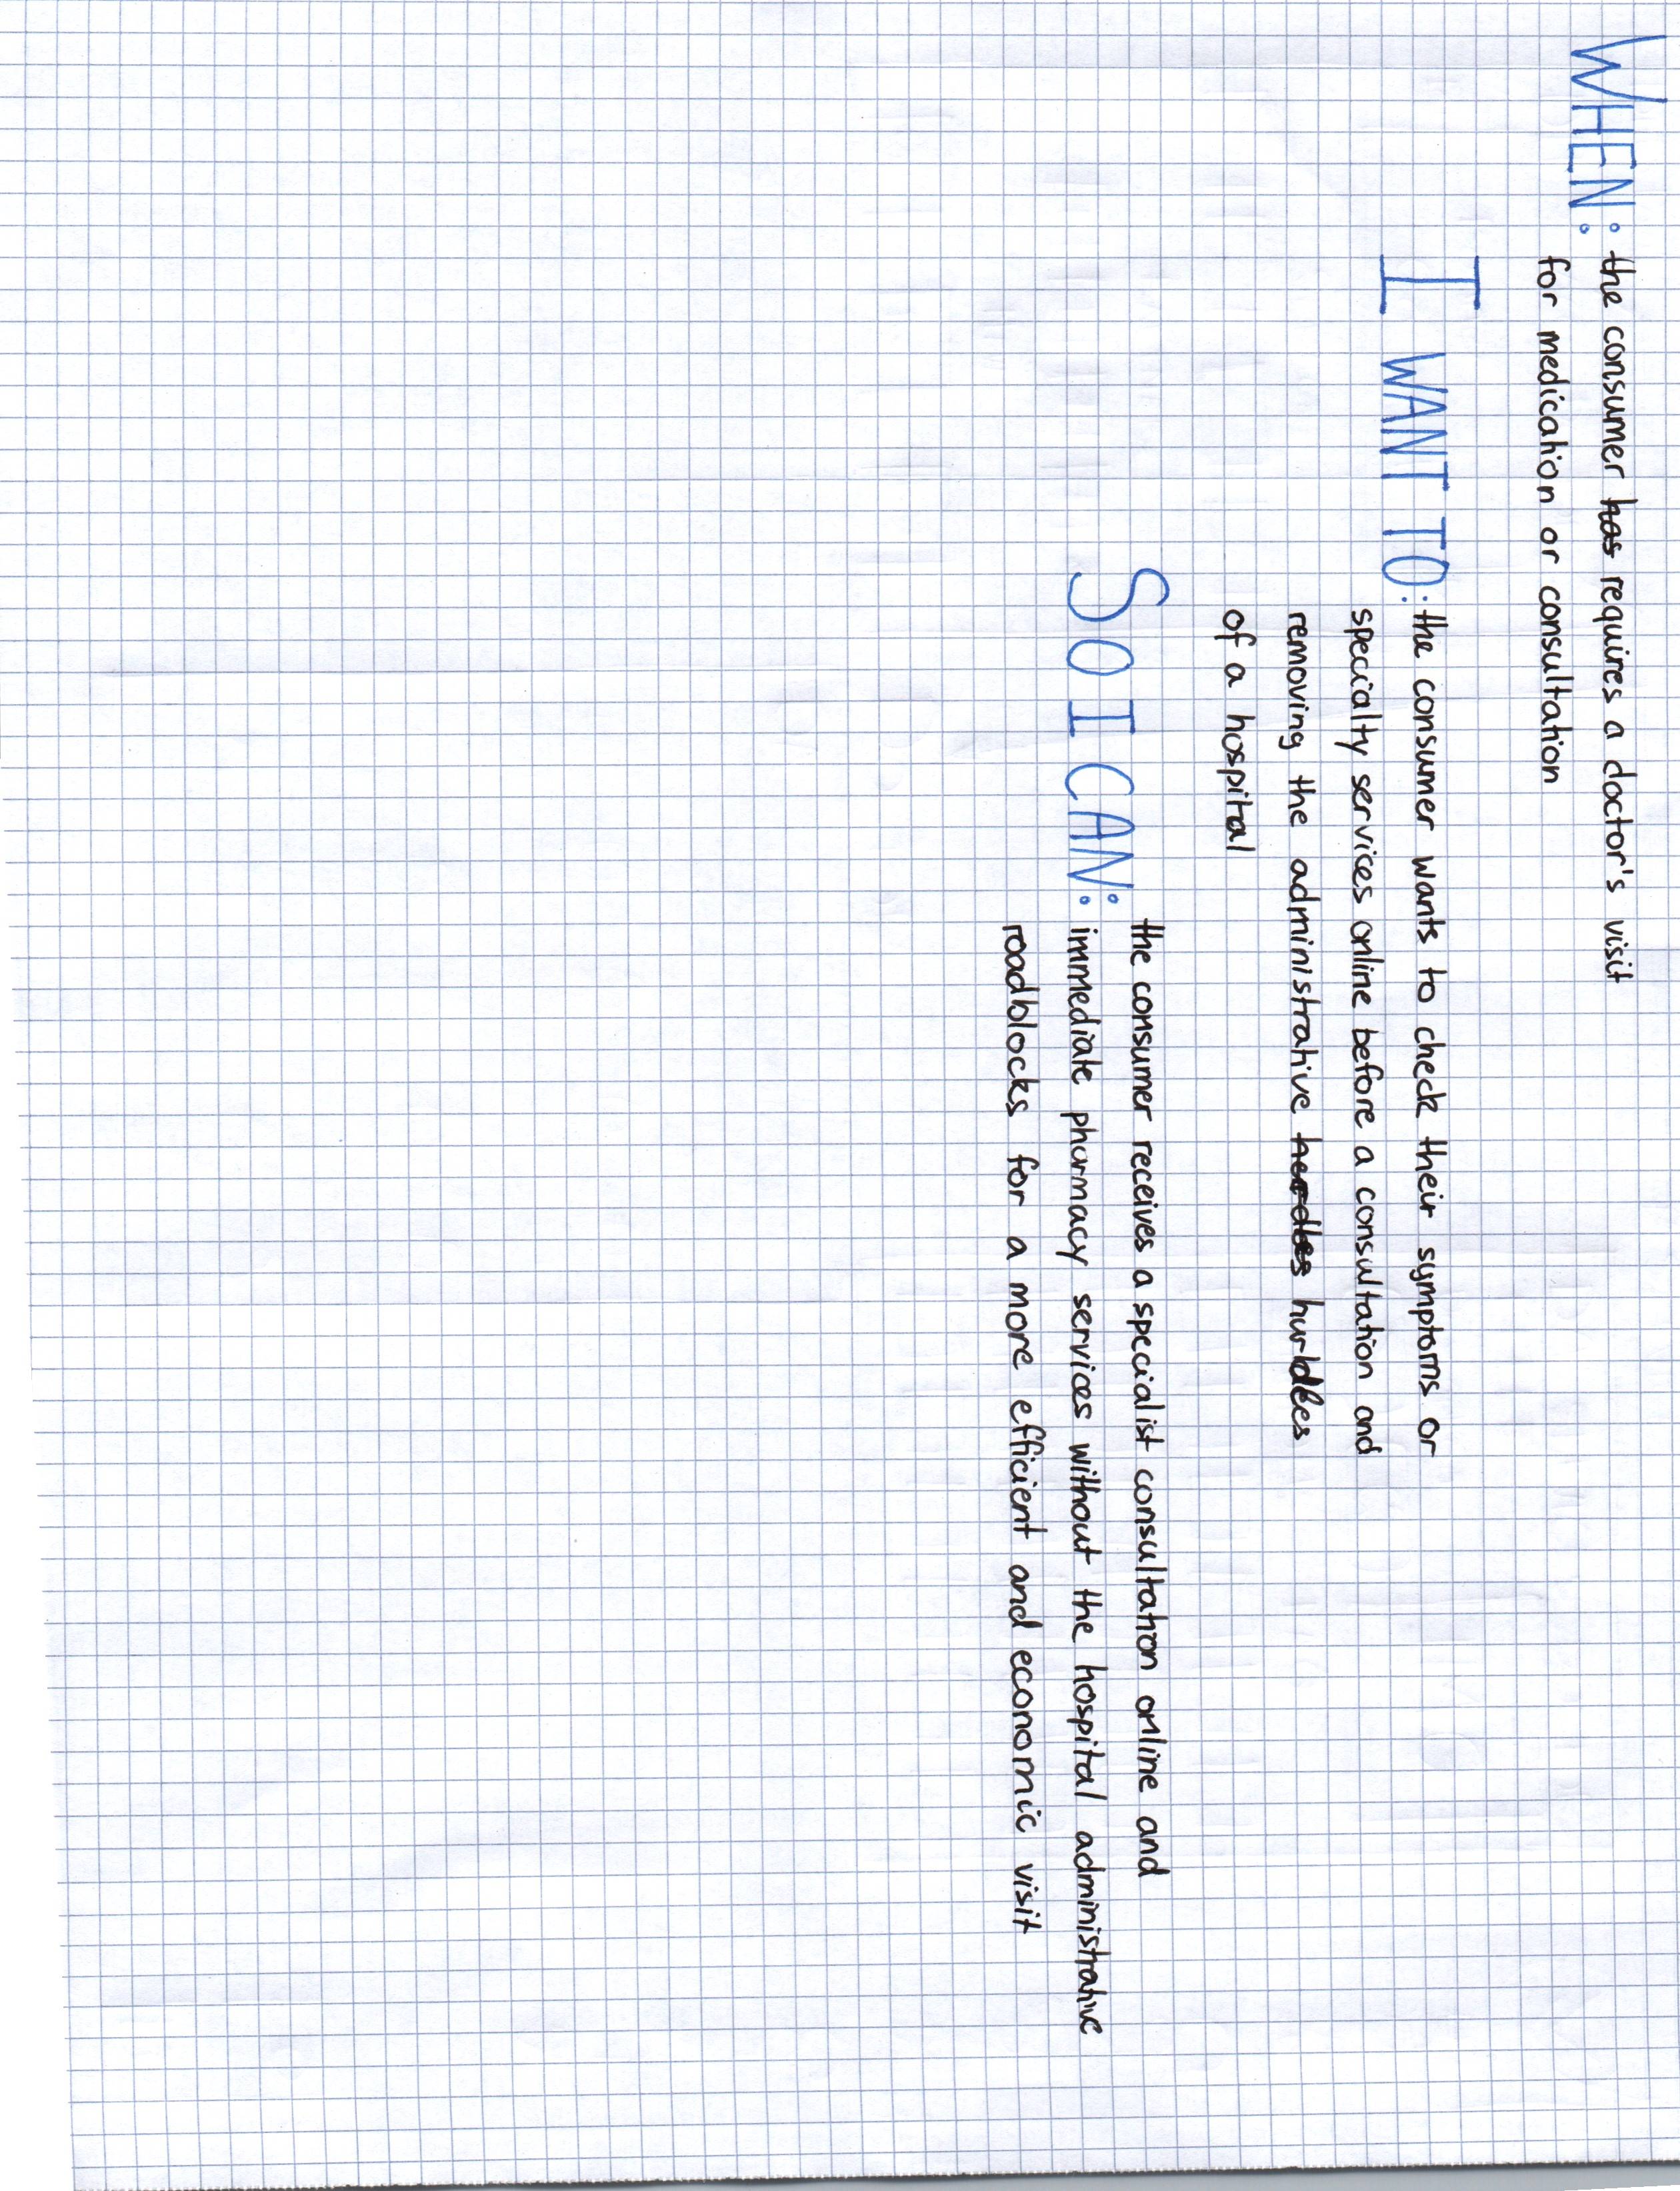 WHEN: the consumer has requires a doctor's visit
for medication or consultation
I WANT TO: the consumer wants to check their symptoms or
specialty services online before a consultation and
removing the administrative herdles hurdles
of a hospital
SO I CAN: the consumer receives a specialist consultation online and
immediate pharmacy services without the hospital administrative
roadblocks for a more efficient and economic visit